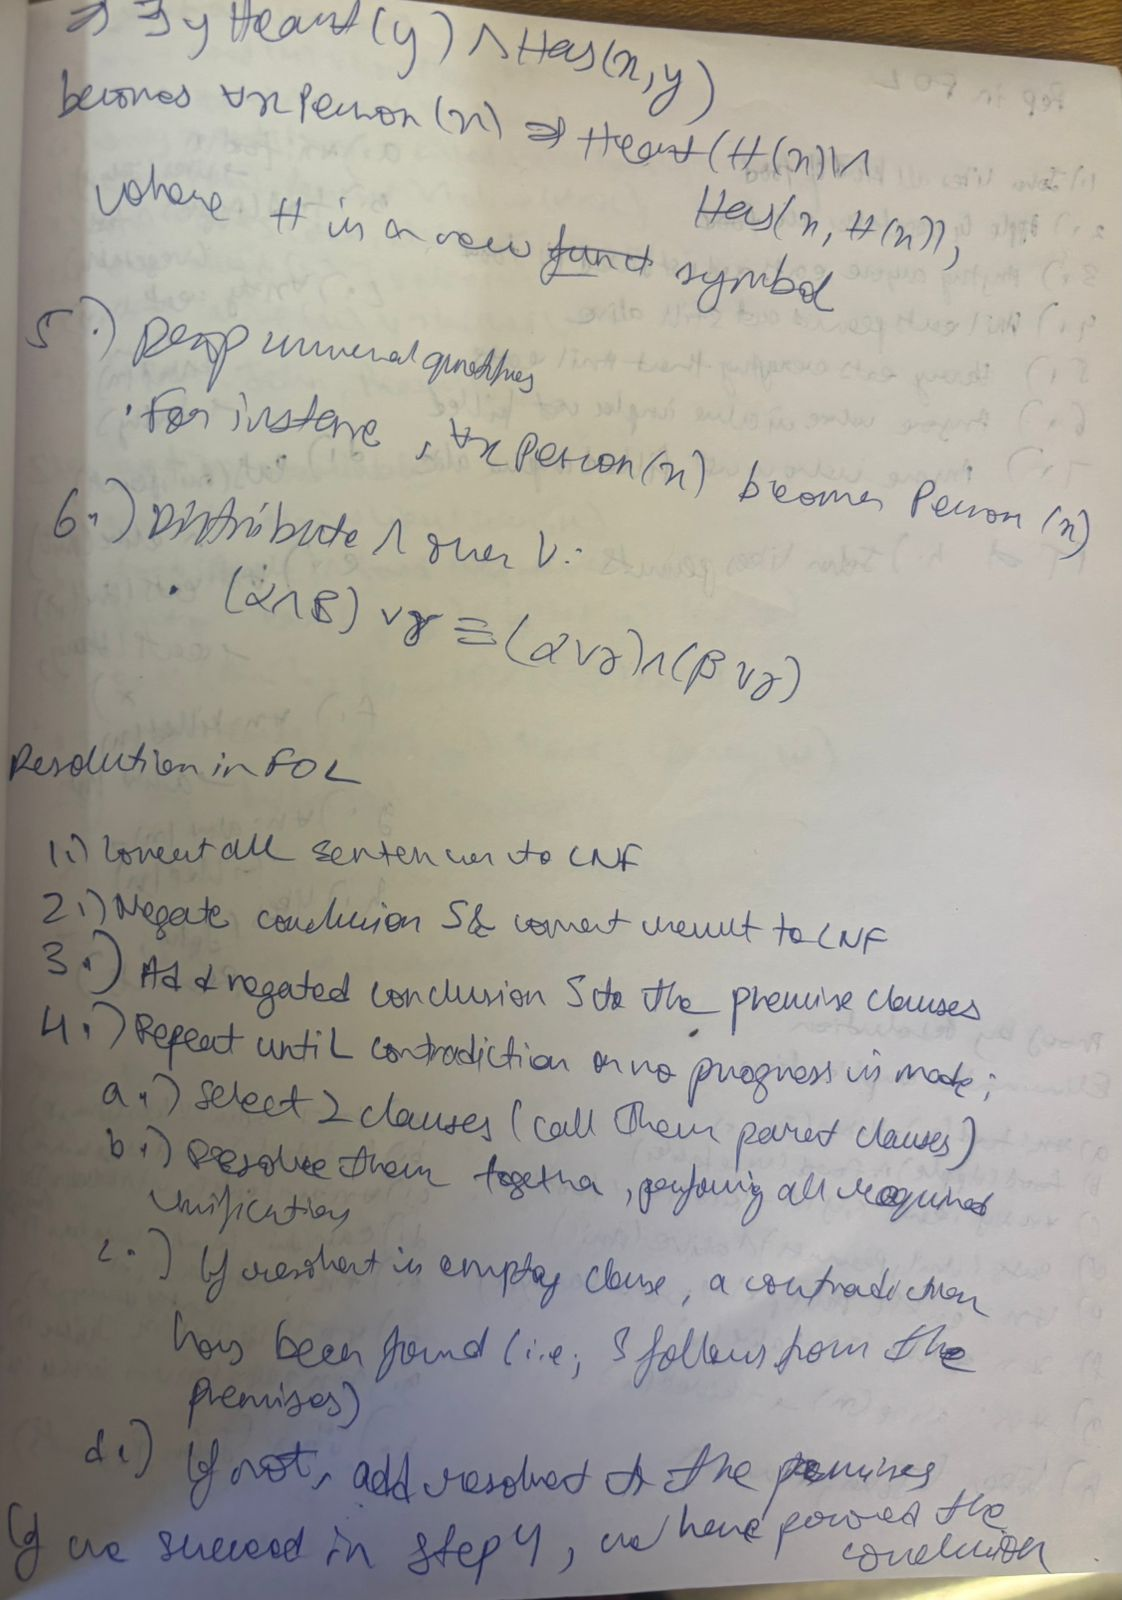 ⇒ ∃y Heart(y) ∧ Has(x,y)
becomes ∀x Person(x) ⇒ Heart(H(x)) ∧
Has(x, H(x)),
where H is a new funct symbol
5.) Drop universal quantifiers
· For instance, ∀x Person(x) becomes Person(x)
6.) Distribute ∧ over ∨:
· (α∧β) ∨γ ≡ (α∨γ)∧(β∨γ)
Resolution in FOL
1.) Convert all sentences to CNF
2.) Negate conclusion S & convert result to CNF
3.) Add negated conclusion S to the premise clauses
4.) Repeat until contradiction or no progress is made;
a.) Select 2 clauses (call them parent clauses)
b.) Resolve them together, performing all required
unification
c.) If resolvent is empty clause, a contradiction
has been found (i.e; S follows from the
premises)
d.) If not, add resolvent to the premises
If we succeed in step 4, we have proved the
conclusion